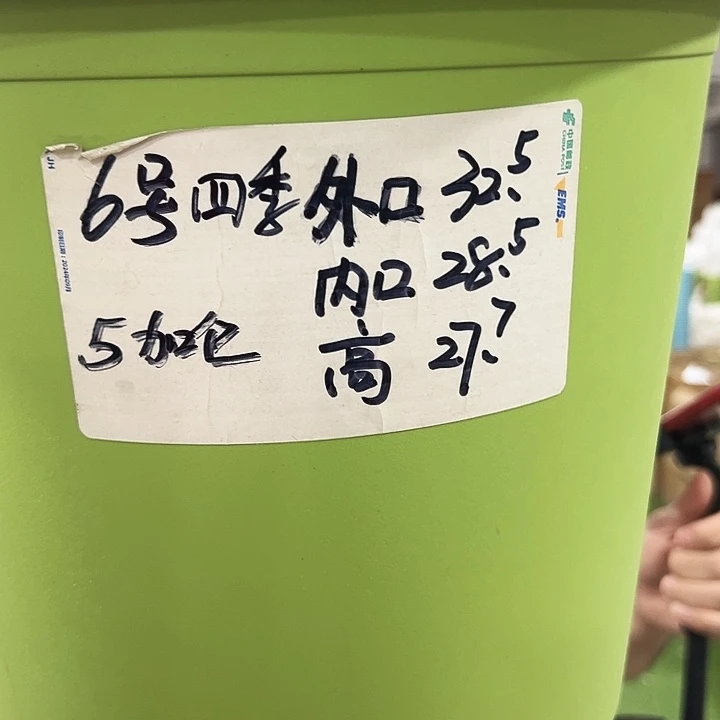 6号四季 外口 32.5
内口 28.5
5加仑 高 27.7
中国邮政
CHINA POST
EMS
JH